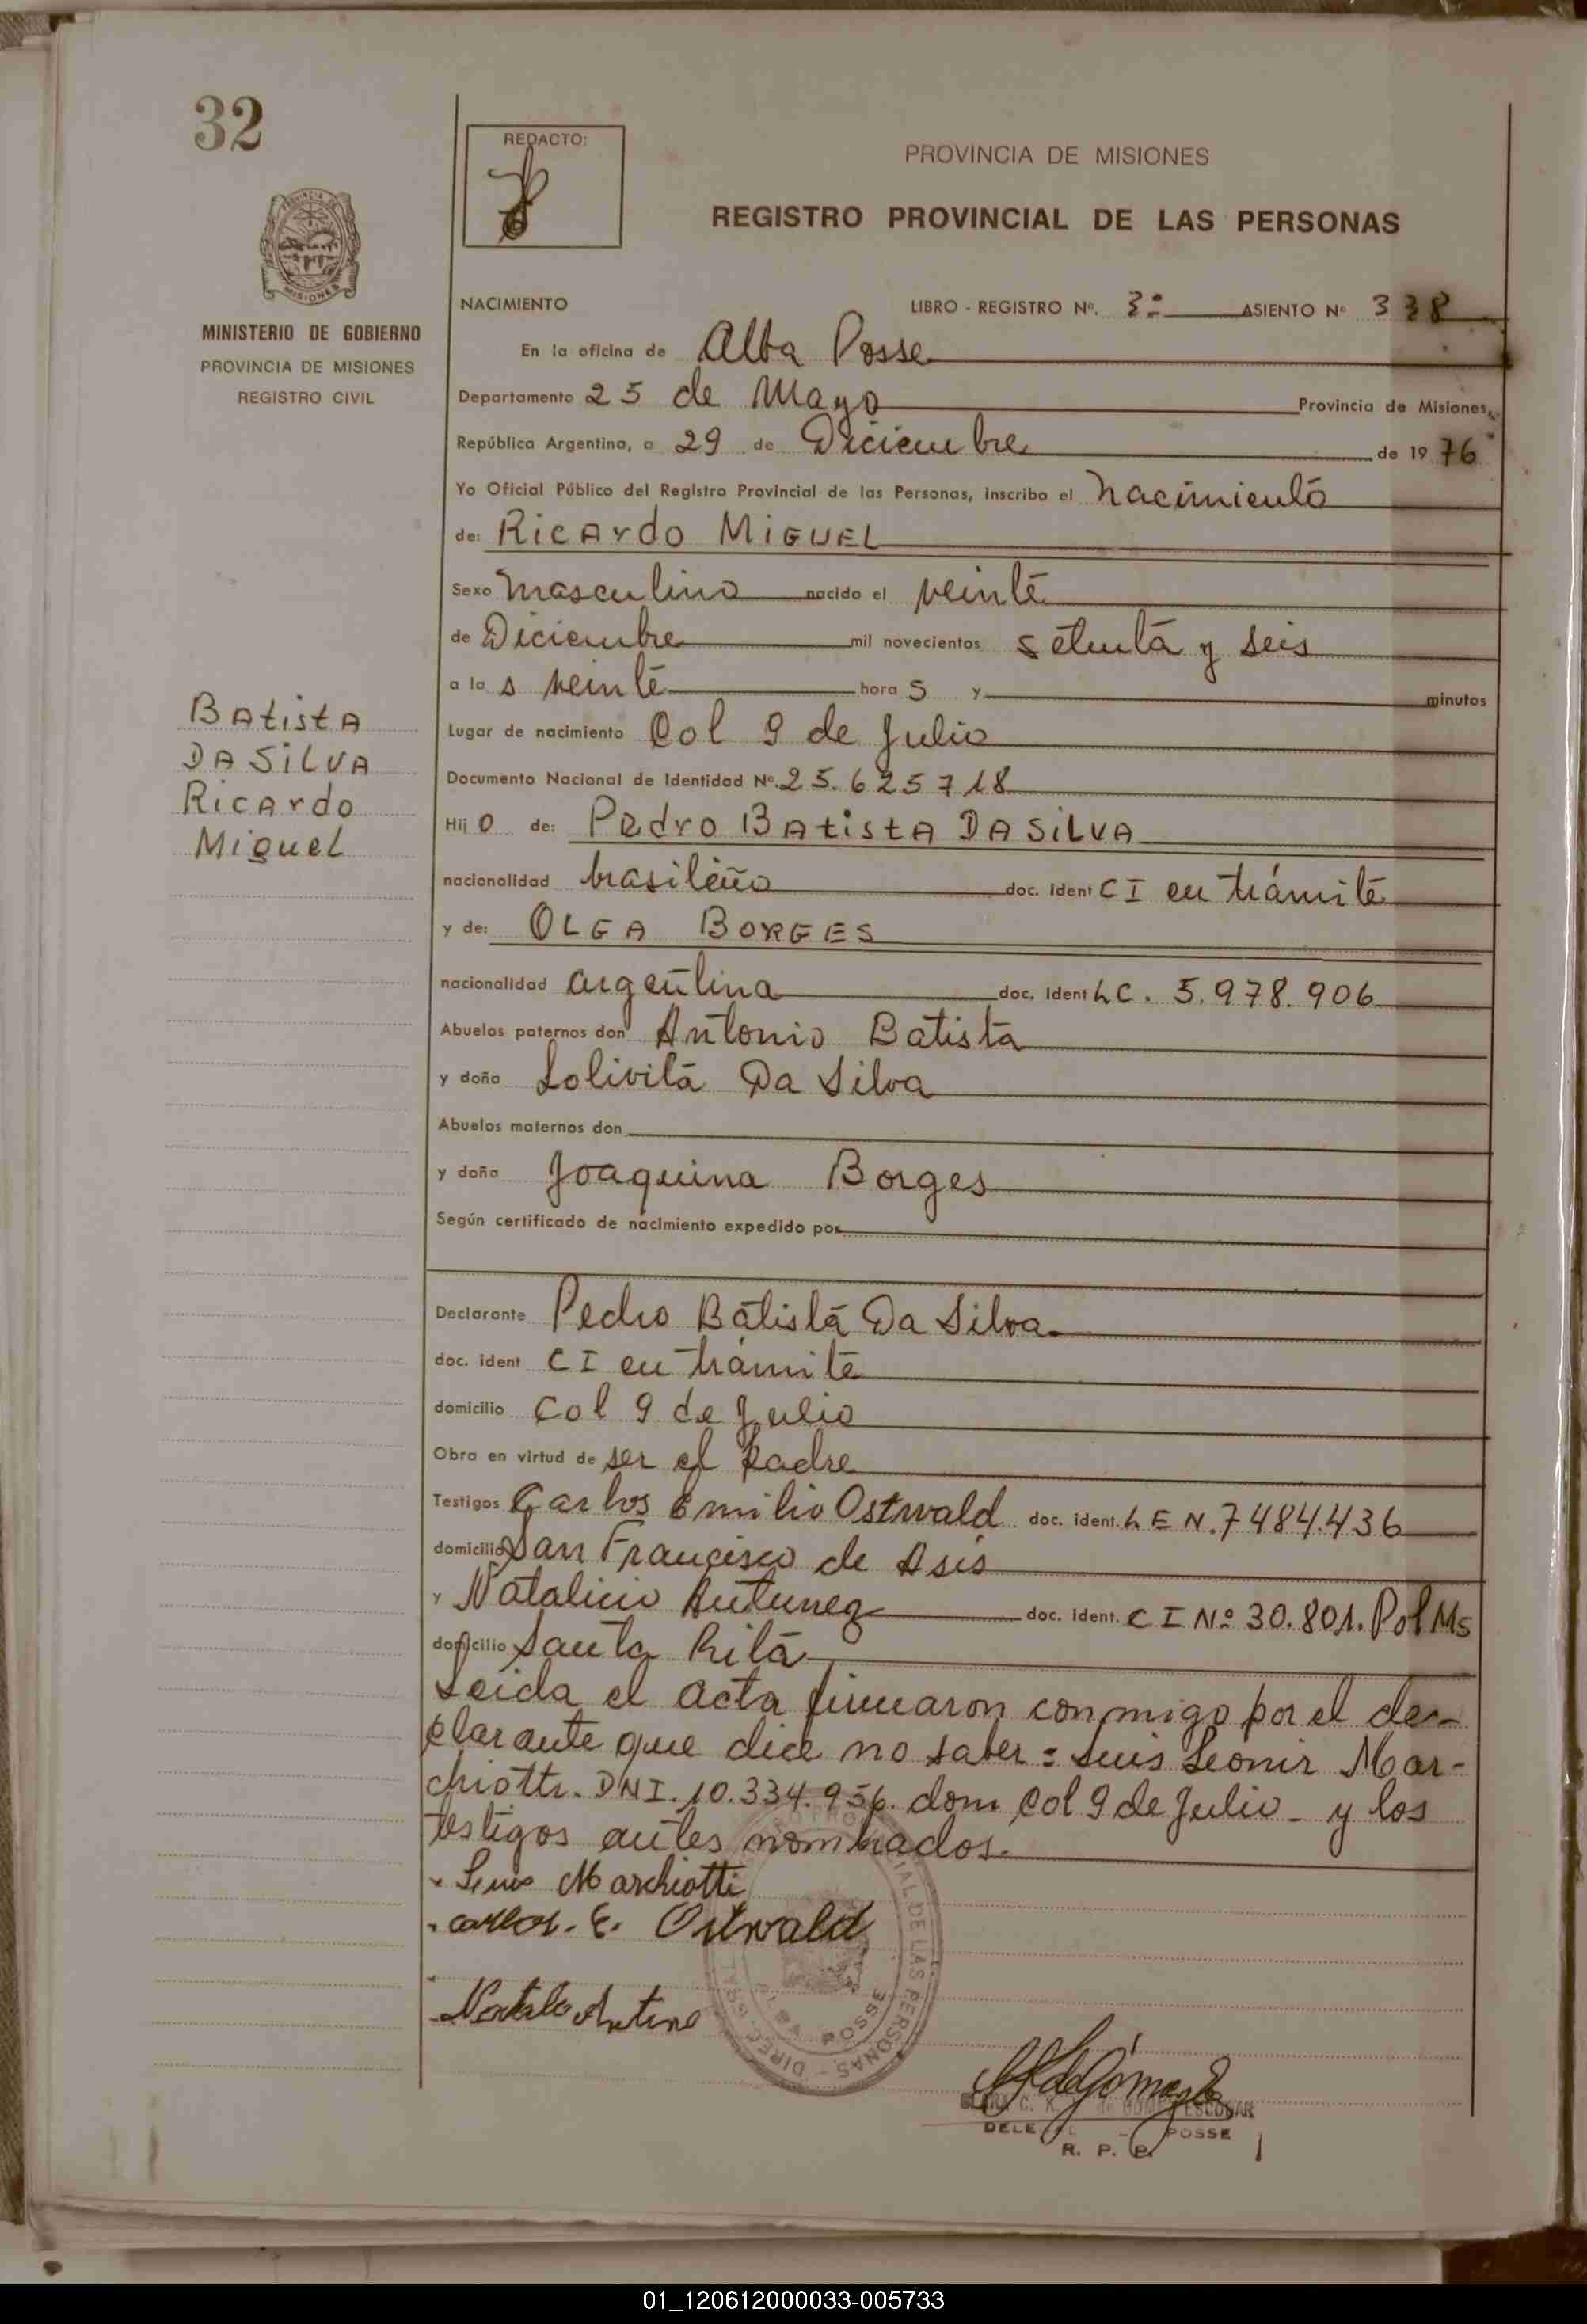 32
REDACTO:
PROVINCIA DE MISIONES
REGISTRO PROVINCIAL DE LAS PERSONAS
MISIONES
MINISTERIO DE GOBIERNO
PROVINCIA DE MISIONES
REGISTRO CIVIL
NACIMIENTO LIBRO - REGISTRO Nº. 3º ASIENTO Nº 338
En la oficina de Alba Posse
Departamento 25 de Mayo Provincia de Misiones,
República Argentina, a 29 de Diciembre de 1976
Yo Oficial Público del Registro Provincial de las Personas, inscribo el nacimiento
de: Ricardo MIGUEL
Sexo masculino nacido el veinte
de Diciembre mil novecientos setenta y seis
a las veinte horas y minutos
Lugar de nacimiento Col 9 de Julio
Documento Nacional de Identidad Nº. 25.625718
Hijo de: Pedro BAtistA DA SiLVA
nacionalidad brasileño doc. ident CI en trámite
y de: OLGA BORGES
nacionalidad argentina doc. ident LC. 5.978.906
Abuelos paternos don Antonio Batista
y doña Lolivita Da Silva
Abuelos maternos don
y doña Joaquina Borges
Según certificado de nacimiento expedido por
BAtistA
DA SiLVA
Ricardo
Miguel
Declarante Pedro Batista Da Silva
doc. ident CI en trámite
domicilio Col 9 de Julio
Obra en virtud de ser el padre
Testigos Carlos Emilio Ostwald doc. ident. LE N. 7484.436
domicilio San Francisco de Asis
y Natalicio Antunez doc. ident. CI Nº 30.801. Pol Ms
domicilio Santa Rita
Leida el acta firmaron conmigo por el de-
clarante que dice no saber: Luis Leonir Mar-
chiotti. DNI. 10.334.956. dom Col 9 de Julio - y los
testigos antes nombrados.
Luis Marchiotti
carlos. E. Ostwald
DELE POSSE
R. P. P.
01_120612000033-005733